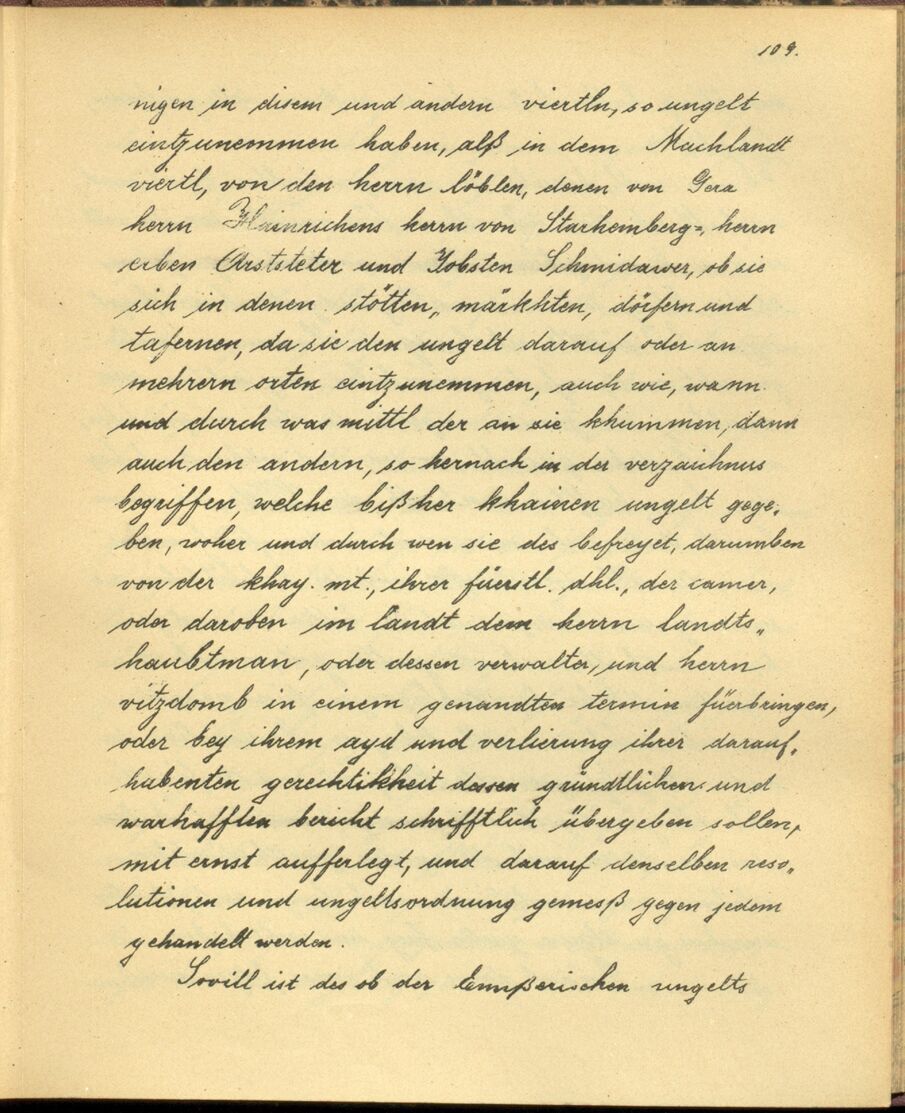 109.
nigen in disem und andern viertln, so ungelt
eintzunemmen haben, alß in dem Machlandt
viertl, von den herrn löblen, denen von Gera
herrn Hainrichens herrn von Starhemberg=, herrn
erben Arststeter und Jobsten Schmidawer, ob sie
sich in denen stötten, märkhten, dörfern und
tafernen, da sie den ungelt darauf oder an
mehrern orten eintzunemmen, auch wie, wann
und durch was mittl der an sie khummen, dann
auch den andern, so hernach in der verzaichnus
begriffen, welche bißher khainen ungelt gege„
ben, woher und durch wen sie des befreyet, darumben
von der khay. mt., ihrer füerstl. dhl., der camer,
oder daroben im landt dem herrn landts„
haubtman, oder dessen verwalter, und herrn
vitzdomb in einem genandten termin füerbringen,
oder bey ihrem ayd und verlierung ihrer darauf„
habenten gerechtikheit dessen gründtlichen und
warhafften bericht schrifftlich übergeben sollen,
mit ernst aufferlegt, und darauf denselben reso„
lutionen und ungeltsordnung gemesß gegen jedem
gehandelt werden.
Sovill ist des ob der Ennßerischen ungelts